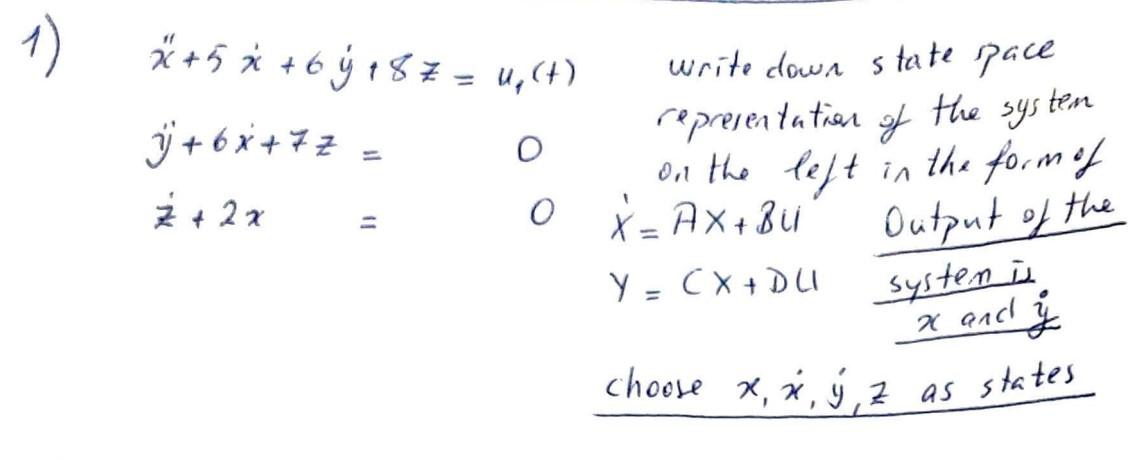 1)
ẍ + 5 ẋ + 6 ẏ + 8 z = u₁(t)
ÿ + 6 ẋ + 7 z = 0
ż + 2x = 0
write down state space
representation of the system
on the left in the form of
Ẋ = AX + BU
Y = CX + DU
Output of the
system is
x and ẏ
choose x, ẋ, ẏ, z as states